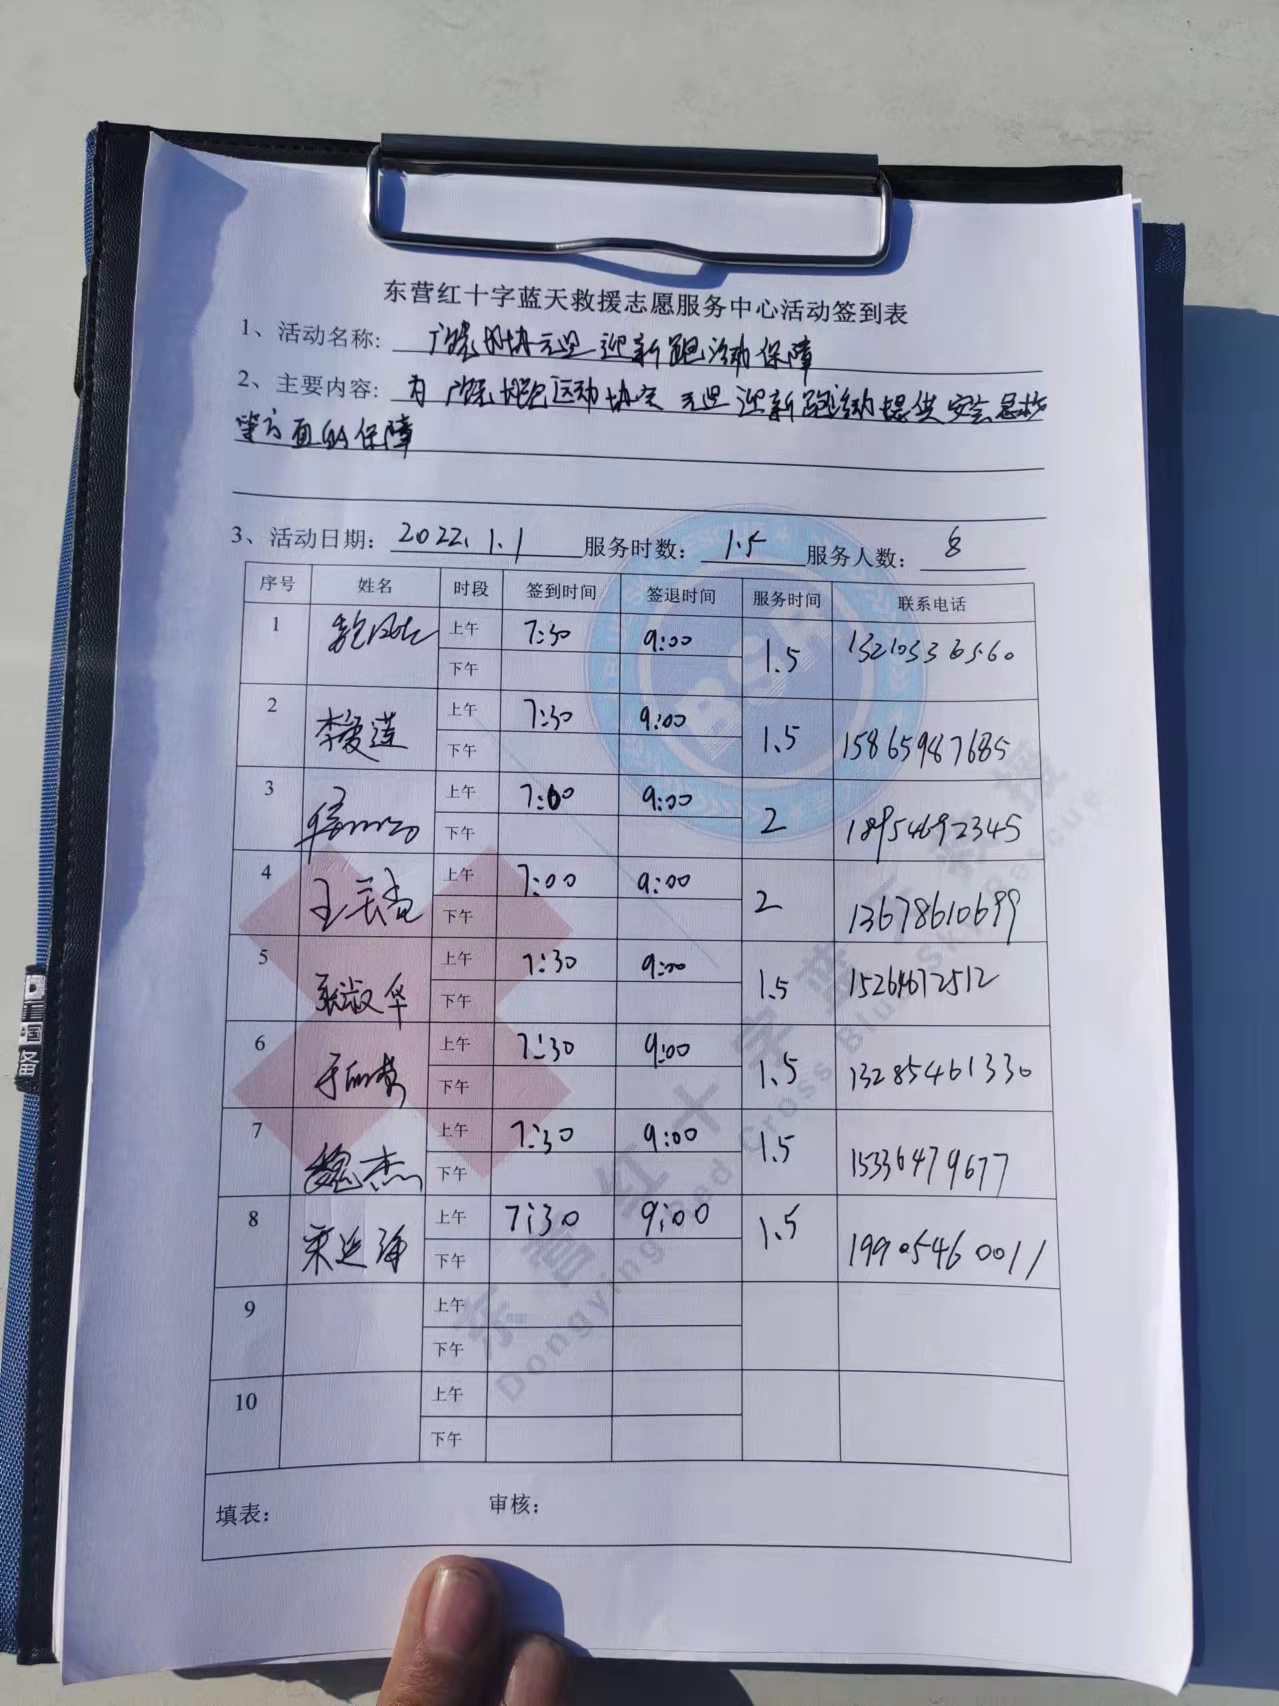 东营红十字蓝天救援志愿服务中心活动签到表
1、活动名称: 广饶 协元旦迎新跑活动保障
2、主要内容: 为广饶 运动协会元旦迎新跑活动提供安全
等方面的保障
3、活动日期: 2022.1.1 服务时数: 1.5 服务人数: 8
序号 姓名 时段 签到时间 签退时间 服务时间 联系电话
1 上午 7:30 9:00 1.5
下午
2 李爱莲 上午 7:30 9:00 1.5 15865987685
下午
3 上午 7:00 9:00 2 18954692345
下午
4 王 上午 7:00 9:00 2 13678610699
下午
5 张淑华 上午 7:30 9:00 1.5 15264672512
下午
6 于 上午 7:30 9:00 1.5 13285461330
下午
7 魏杰 上午 7:30 9:00 1.5 15336479677
下午
8 宋延 上午 7:30 9:00 1.5 19905460011
下午
9 上午
下午
10 上午
下午
填表: 审核:
东营红十字蓝天救援
Dongying Red Cross Blue Sky Rescue
BSR